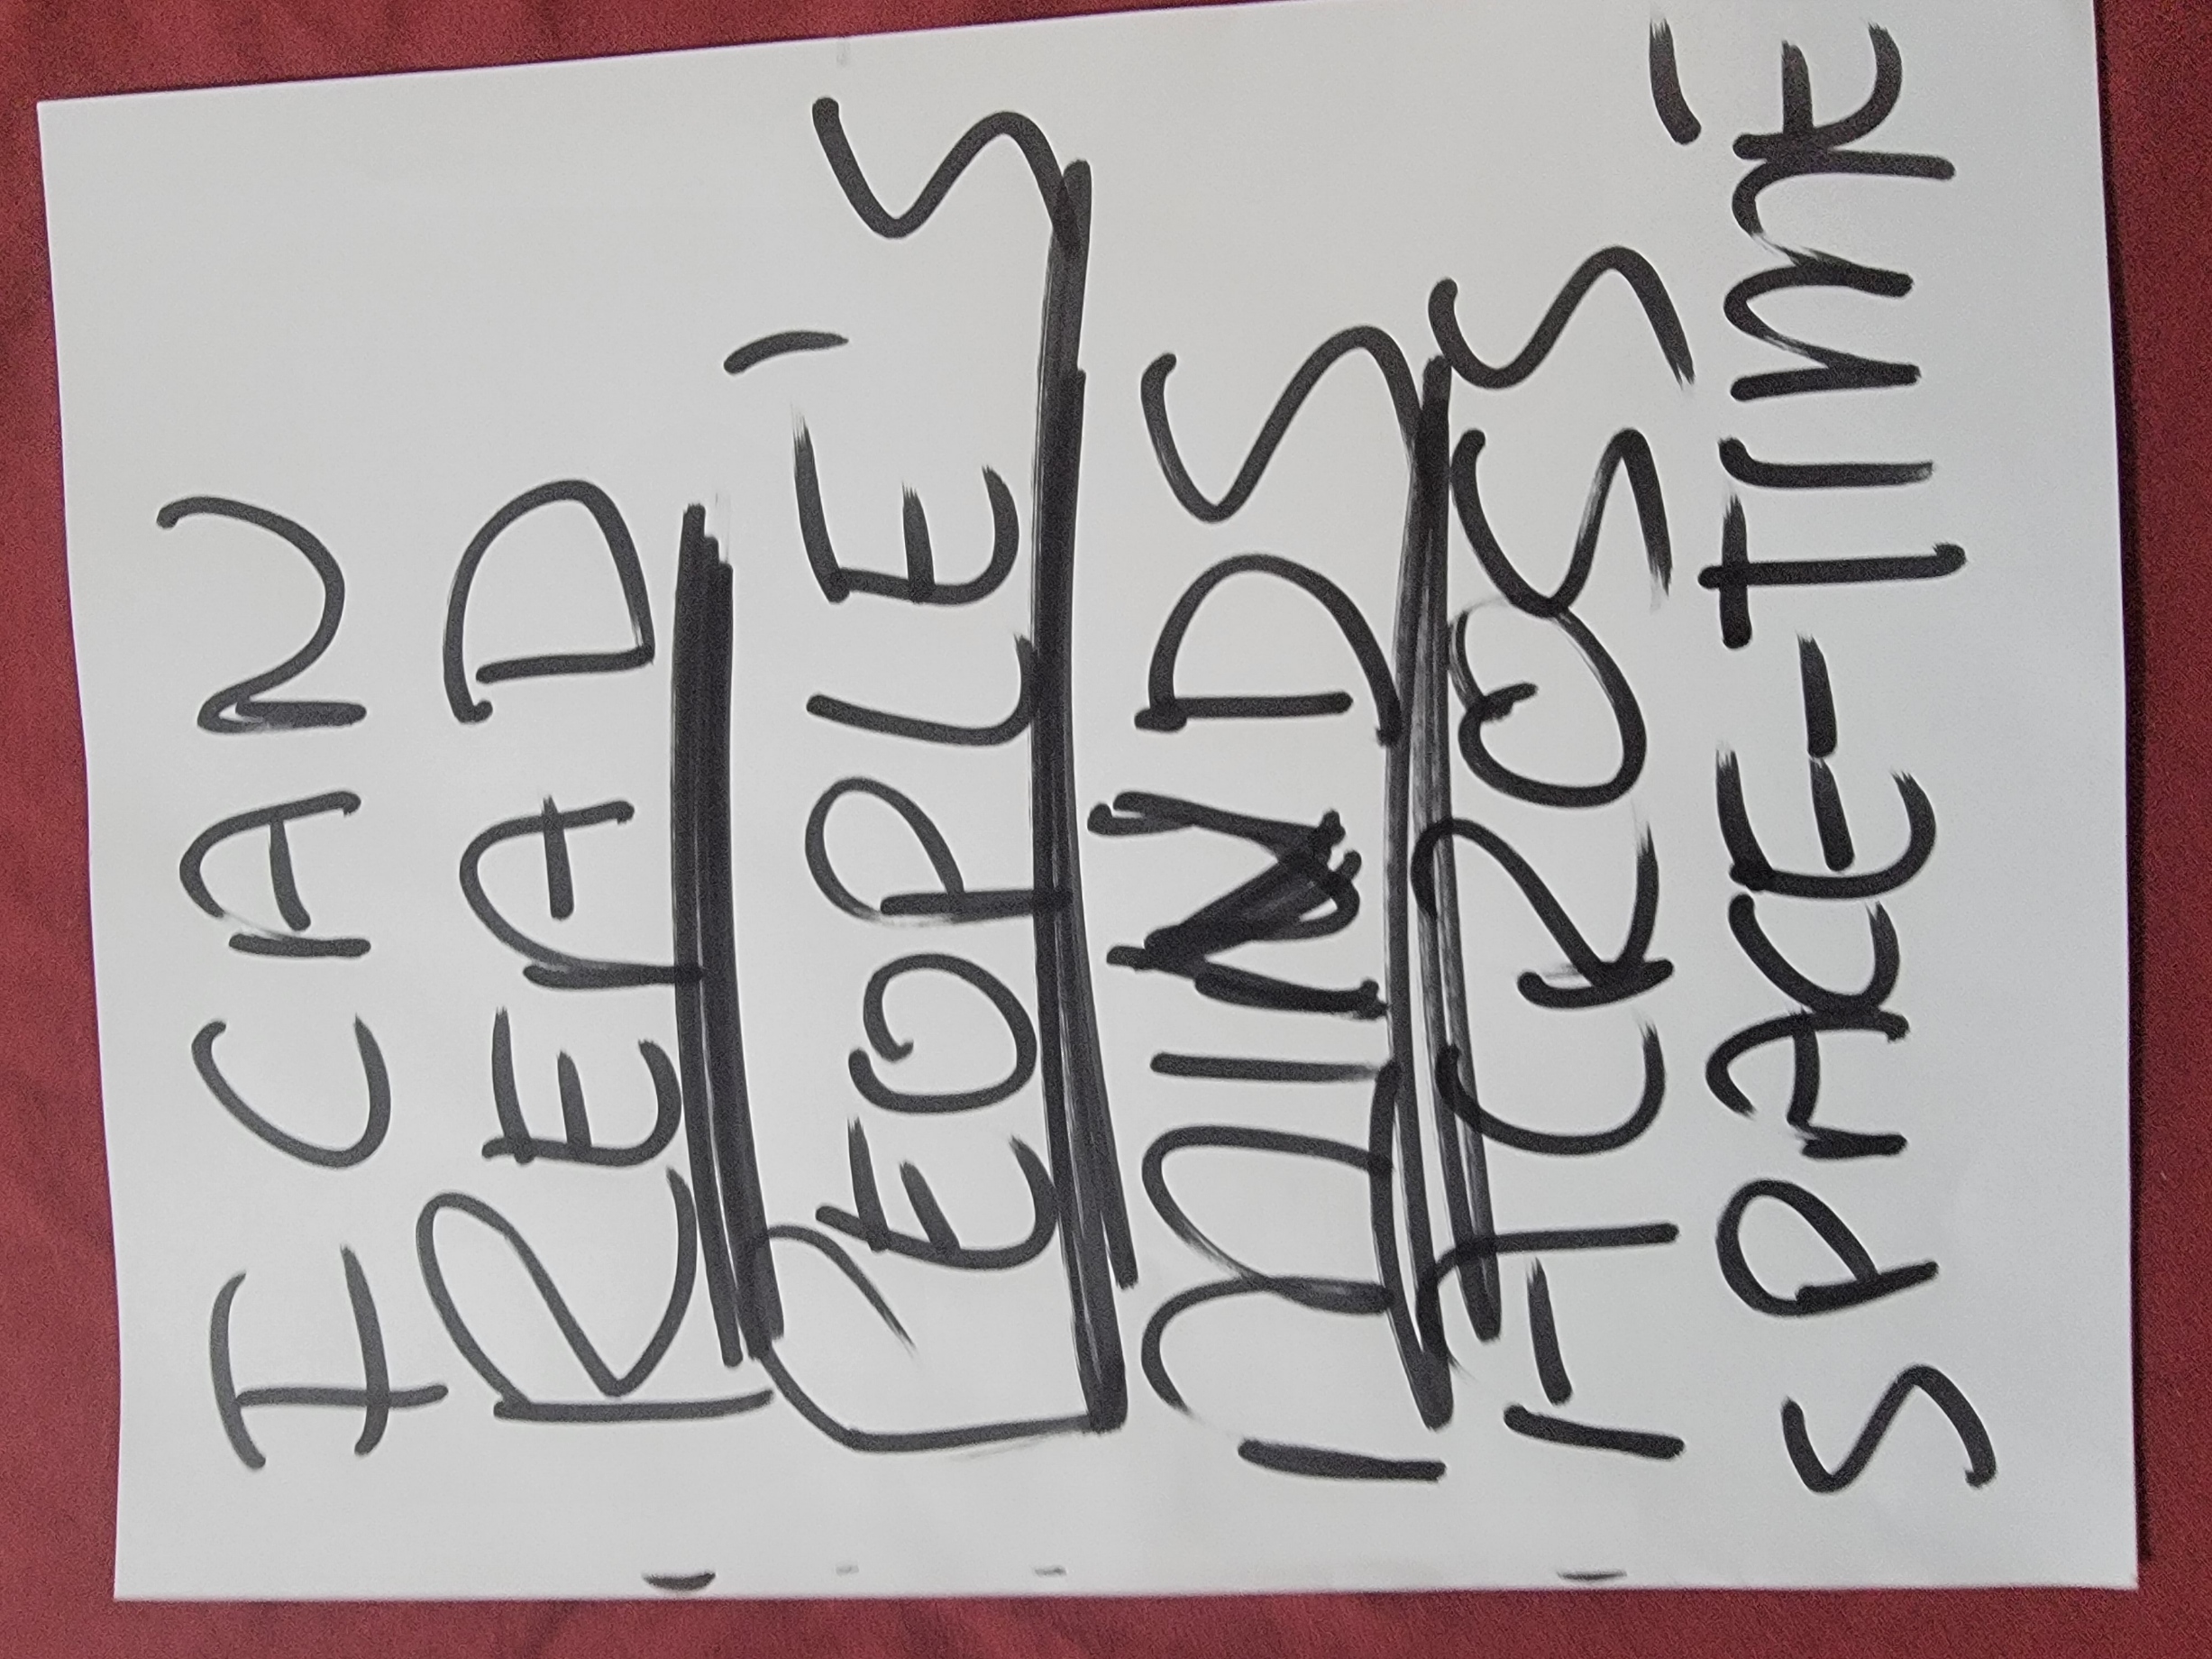 I CAN
READ
PEOPLE'S
MINDS
ACROSS
SPACE-TIME